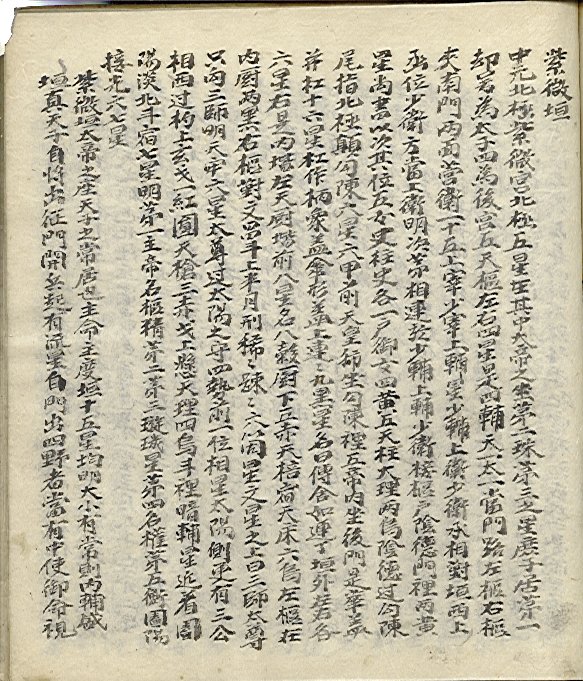 紫微垣
中元北極紫微宮北極五星在其中大帝之坐第二珠第三之星庶子居第一
却名為太子四為後宮五天樞左右四星是四輔天一太一當門路左樞右樞
夾南門兩面營衛一十五上宰少宰上輔星少輔上衛少衛丞相對垣西上
丞位少衛方當上衛明次第相連於少輔上輔少衛接樞戶陰德門裡兩黃
星尚書以次其位五女史柱史各一戶御女四黃五天柱大理兩烏陰德边勾陳
尾指北極顛勾陳六星六甲前天皇獨坐勾陳裡五帝內坐後門是華蓋
并杠十六星杠作柄象蓋傘形蓋上連連九黑星名曰傳舍如連丁垣外左右各
六星右是內堦左天厨堦前八星名八榖厨下五赤天棓宿天床六烏左樞在
內厨兩黑右樞對文昌斗上半月形稀稀踈踈六個星文昌之上曰三師太尊
只向三師明天牢六星太尊边太陽之守四勢前一位相星太陽側更有三公
相西边杓上玄戈一紅圓天槍三赤戈上懸天理四烏斗裡暗輔星近着開
陽淡北斗宿七星明第一主帝名樞精第二第三璇璣星第四名權第五衡開陽
揺光六七星
紫微垣大帝之座天子之常居也主命主度垣十五星均明大小有常則內輔盛
垣直天子自將出征門開兵起有流星自門出四野者當有中使御命視